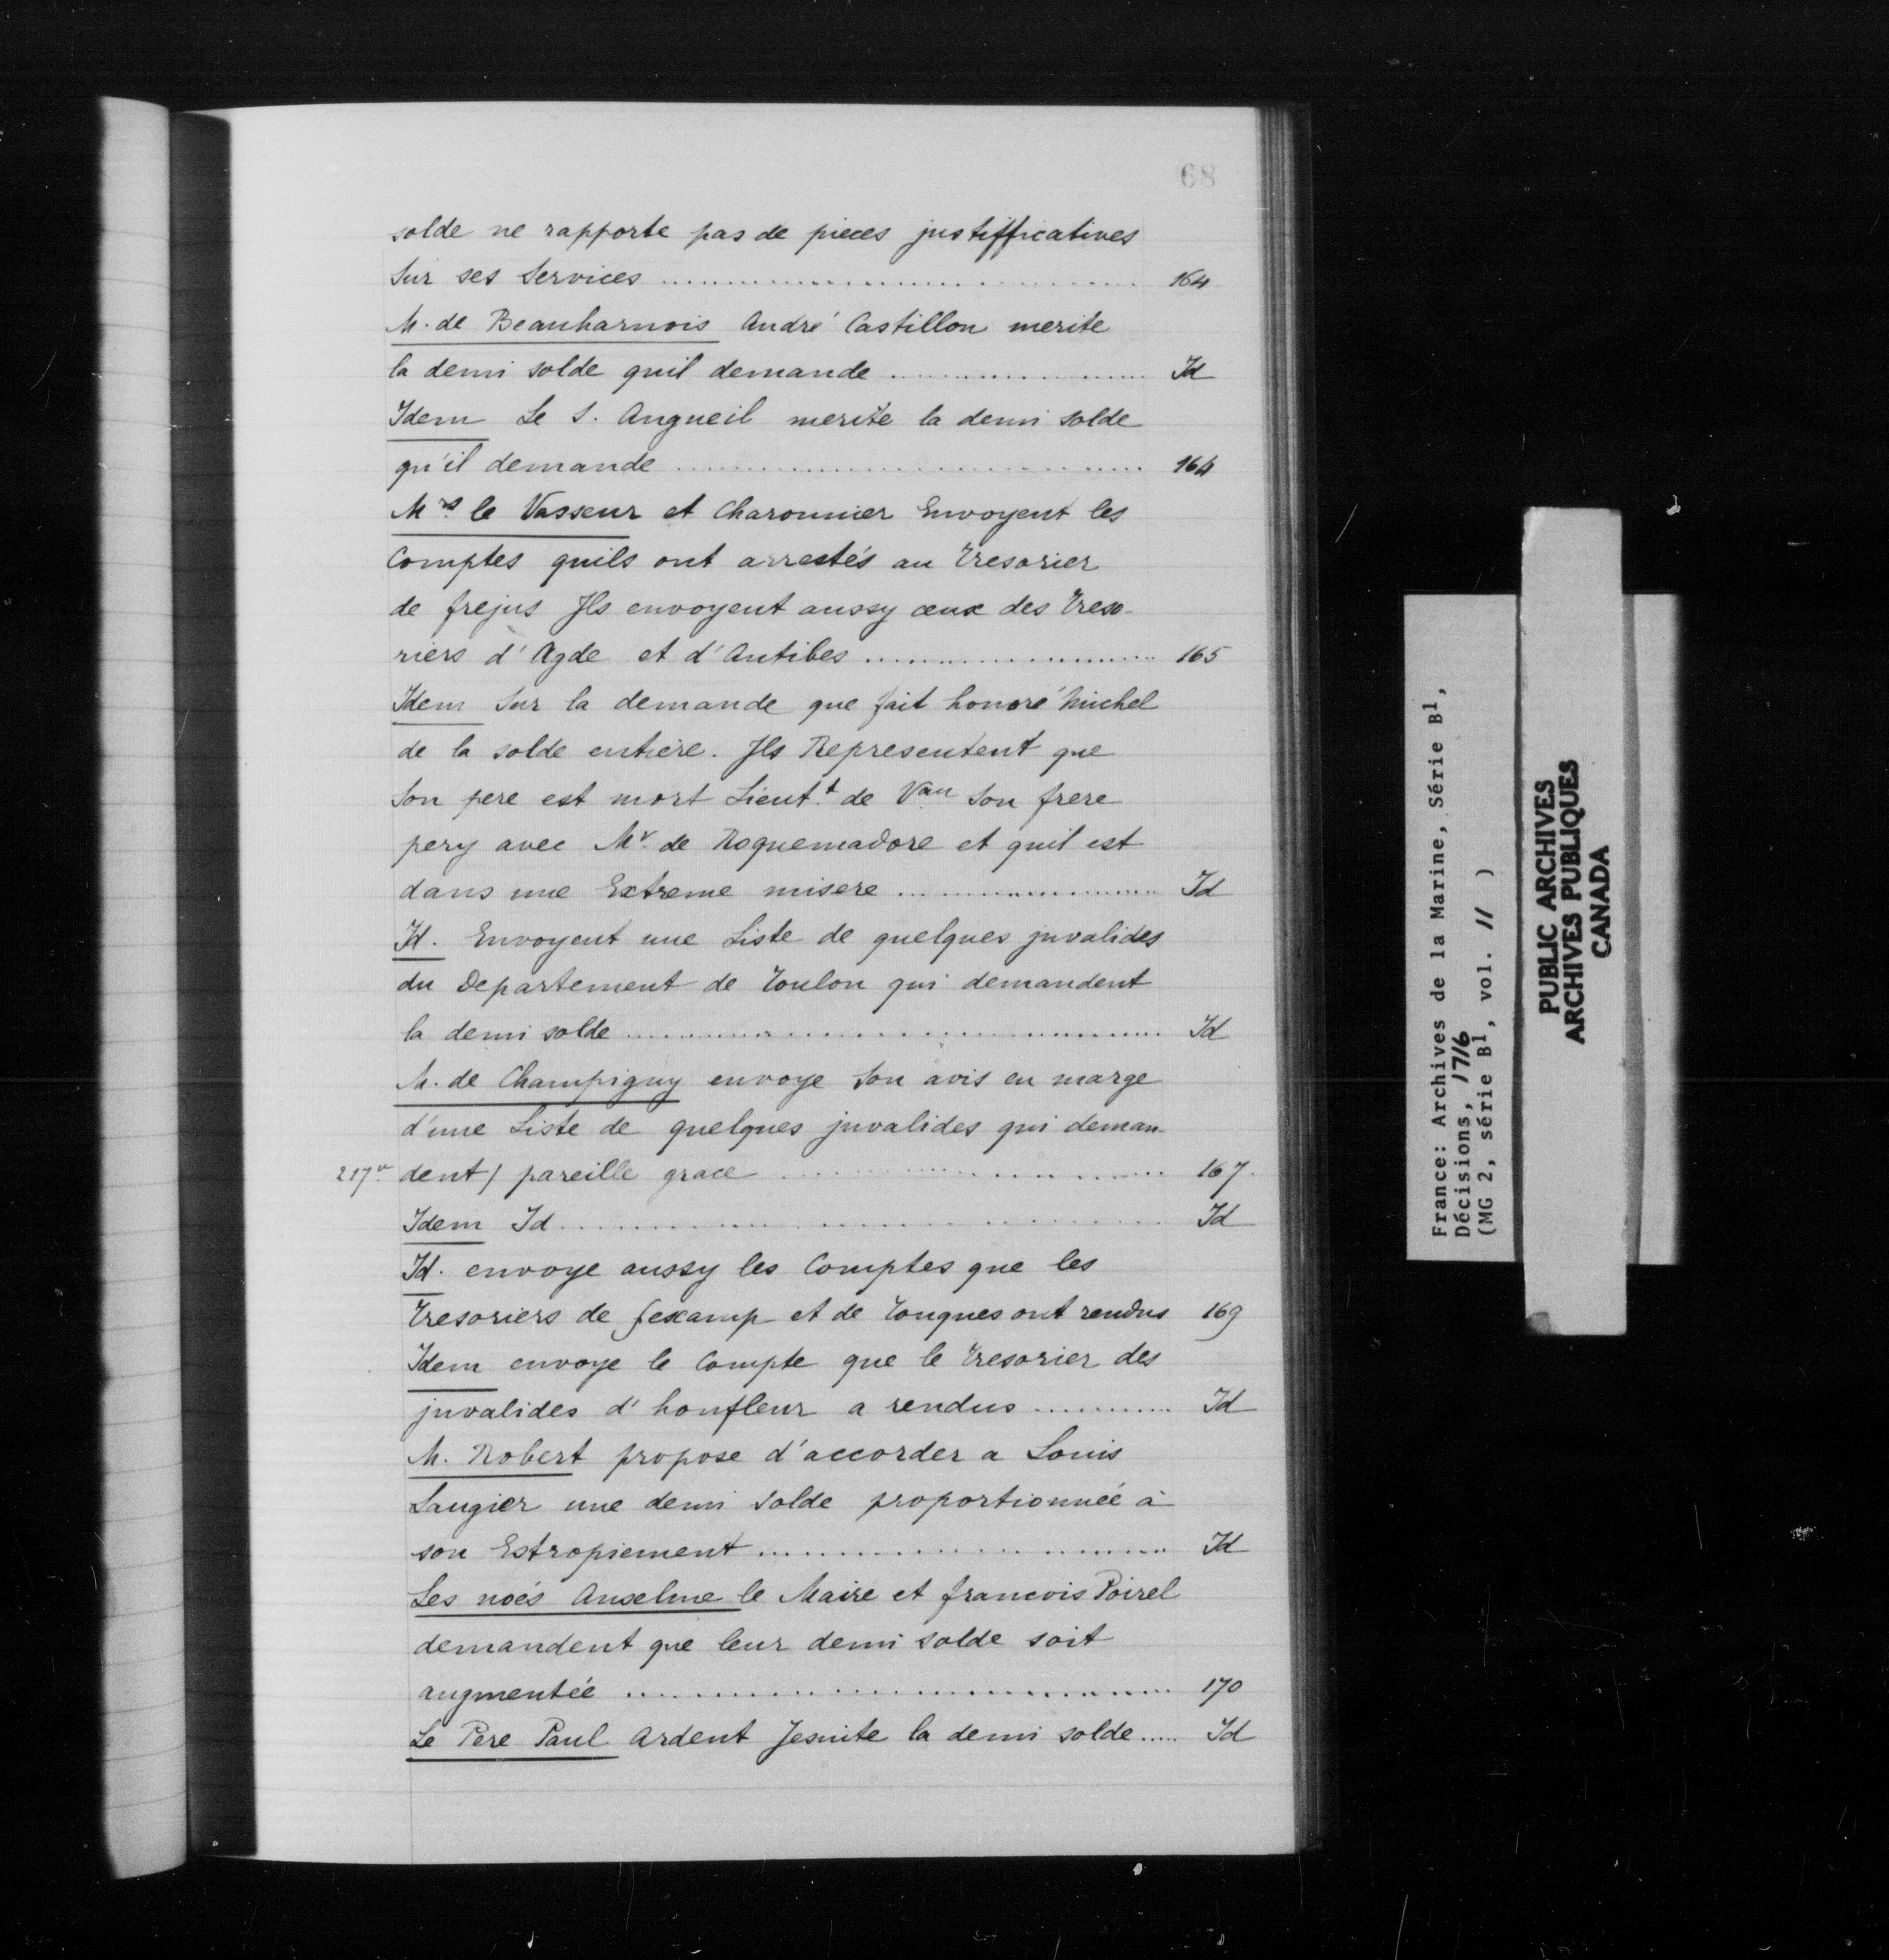 68
solde ne rapporte pas de pieces justifficatives
sur ses services ........ 164
M. de Beauharnois André Castillon merite
la demi solde quil demande ........ Id
Idem Le S. Angueil merite la demi solde
qu'il demande ........ 164
Mrs le Vasseur et Charonnier Envoyent les
Comptes quils ont arrestés au Tresorier
de frejus Ils envoyent aussy ceux des Treso-
riers d'Agde et d'Antibes ........ 165
Idem Sur la demande que fait honoré Michel
de la solde entière. Ils Representent que
Son pere est mort Lieut.t de Vau Son frere
pery avec Mr. de Roquemadore et quil est
dans une Extreme misere ........ Id
Id. Envoyent une Liste de quelques jnvalides
du Departement de Toulon qui demandent
la demi solde ........ Id
M. de Champigny envoye Son avis en marge
d'une Liste de quelques jnvalides qui deman-
217v. dent/ pareille grace ........ 167.
Idem Id ........ Id
Id. envoye aussy les Comptes que les
Tresoriers de fexcamp et de Touques ont rendus 169
Idem envoye le Compte que le Tresorier des
jnvalides d'honfleur a rendus ........ Id
M. Robert propose d'accorder a Louis
Laugier une demi solde proportionnée à
son Estropiement ........ Id
Les noés Anselme le Maire et francois Poirel
demandent que leur demi solde soit
augmentée ........ 170
Le Pere Paul Ardent Jesuite la demi solde ..... Id
France: Archives de la Marine, Série B1,
Décisions, 1716
(MG 2, série B1, vol. 11 )
PUBLIC ARCHIVES
ARCHIVES PUBLIQUES
CANADA